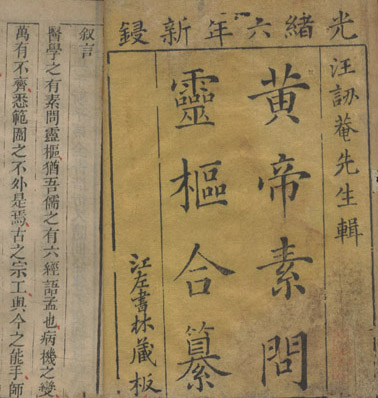 光緒六年新鋟
汪訒菴先生輯
黃帝素問
靈樞合纂
江左書林藏板
叙言
醫學之有素問靈樞猶吾儒之有六經語孟也病機之變
萬有不齊悉範圍之不外是焉古之宗工與今之能手師